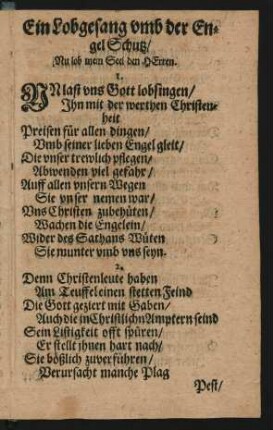 Ein Lobgesang vmb der En-
gel Schutz/
Nu lob mein Seel den HErren.
1.
NVlast vns Gott lobsingen/
Ihn mit der werthen Christen-
heit
Preisen für allen dingen/
Vmb seiner lieben Engel gleit/
Die vnser trewlich pflegen/
Abwenden viel gefahr/
Auff allen vnsern Wegen
Sie vnser nemen war/
Vns Christen zubehüten/
Wachen die Engelein/
Wider des Sathans Wüten
Sie munter vmb vns seyn.
2.
Denn Christenleute haben
Am Teuffel einen stetten Feind
Die Gott geziert mit Gaben/
Auch die in Christlichn Amptern seind
Sein Listigkeit offt spüren/
Er stellt ihnen hart nach/
Sie bößlich zuverführen/
Verursacht manche Plag
Pest/